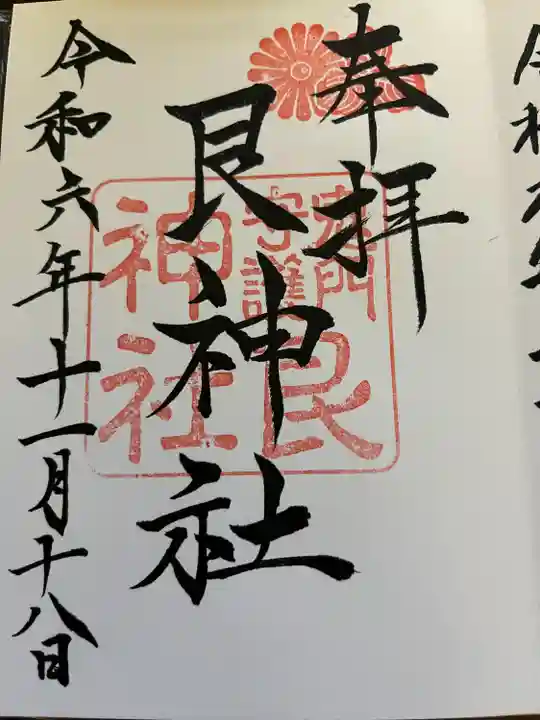 奉拝
艮神社
令和六年十一月十八日
鬼門
守護
艮
神社